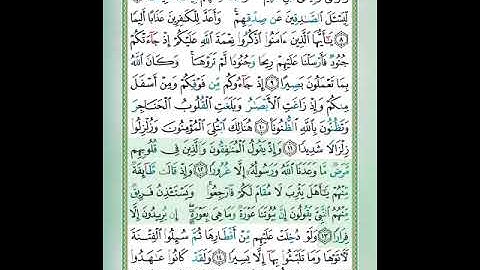 لِّيَسْـَٔلَ ٱلصَّـٰدِقِينَ عَن صِدْقِهِمْ ۚ وَأَعَدَّ لِلْكَـٰفِرِينَ عَذَابًا أَلِيمًا
٨ يَـٰٓأَيُّهَا ٱلَّذِينَ ءَامَنُوا۟ ٱذْكُرُوا۟ نِعْمَةَ ٱللَّهِ عَلَيْكُمْ إِذْ جَآءَتْكُمْ
جُنُودٌ فَأَرْسَلْنَا عَلَيْهِمْ رِيحًا وَجُنُودًا لَّمْ تَرَوْهَا ۚ وَكَانَ ٱللَّهُ
بِمَا تَعْمَلُونَ بَصِيرًا ٩ إِذْ جَآءُوكُم مِّن فَوْقِكُمْ وَمِنْ أَسْفَلَ
مِنكُمْ وَإِذْ زَاغَتِ ٱلْأَبْصَـٰرُ وَبَلَغَتِ ٱلْقُلُوبُ ٱلْحَنَاجِرَ
وَتَظُنُّونَ بِٱللَّهِ ٱلظُّنُونَا۠ ١٠ هُنَالِكَ ٱبْتُلِىَ ٱلْمُؤْمِنُونَ وَزُلْزِلُوا۟
زِلْزَالًا شَدِيدًا ١١ وَإِذْ يَقُولُ ٱلْمُنَـٰفِقُونَ وَٱلَّذِينَ فِى قُلُوبِهِم
مَّرَضٌ مَّا وَعَدَنَا ٱللَّهُ وَرَسُولُهُۥٓ إِلَّا غُرُورًا ١٢ وَإِذْ قَالَت طَّآئِفَةٌ
مِّنْهُمْ يَـٰٓأَهْلَ يَثْرِبَ لَا مُقَامَ لَكُمْ فَٱرْجِعُوا۟ ۚ وَيَسْتَـْٔذِنُ فَرِيقٌ
مِّنْهُمُ ٱلنَّبِىَّ يَقُولُونَ إِنَّ بُيُوتَنَا عَوْرَةٌ وَمَا هِىَ بِعَوْرَةٍ ۖ إِن يُرِيدُونَ إِلَّا
فِرَارًا ١٣ وَلَوْ دُخِلَتْ عَلَيْهِم مِّنْ أَقْطَارِهَا ثُمَّ سُئِلُوا۟ ٱلْفِتْنَةَ
لَـَٔاتَوْهَا وَمَا تَلَبَّثُوا۟ بِهَآ إِلَّا يَسِيرًا ١٤ وَلَقَدْ كَانُوا۟ عَـٰهَدُوا۟